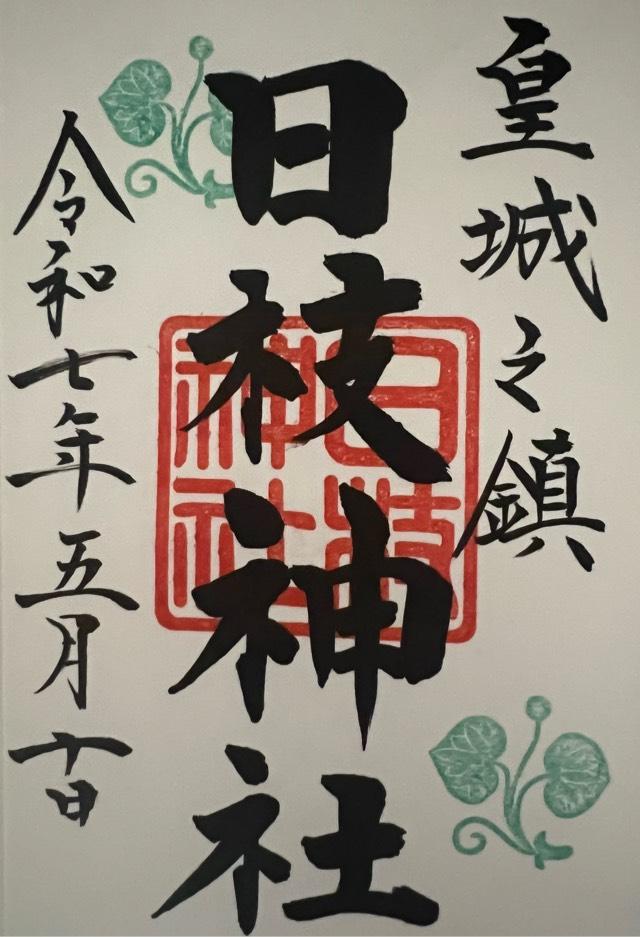 皇城之鎮
日枝神社
日枝神社
令和七年五月十日